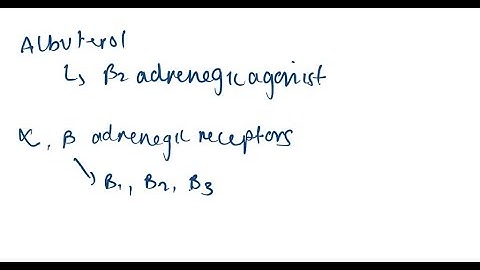 Albuterol
↳ B2 adrenegic agonist
α, B adrenegic receptors
↘ B1, B2, B3